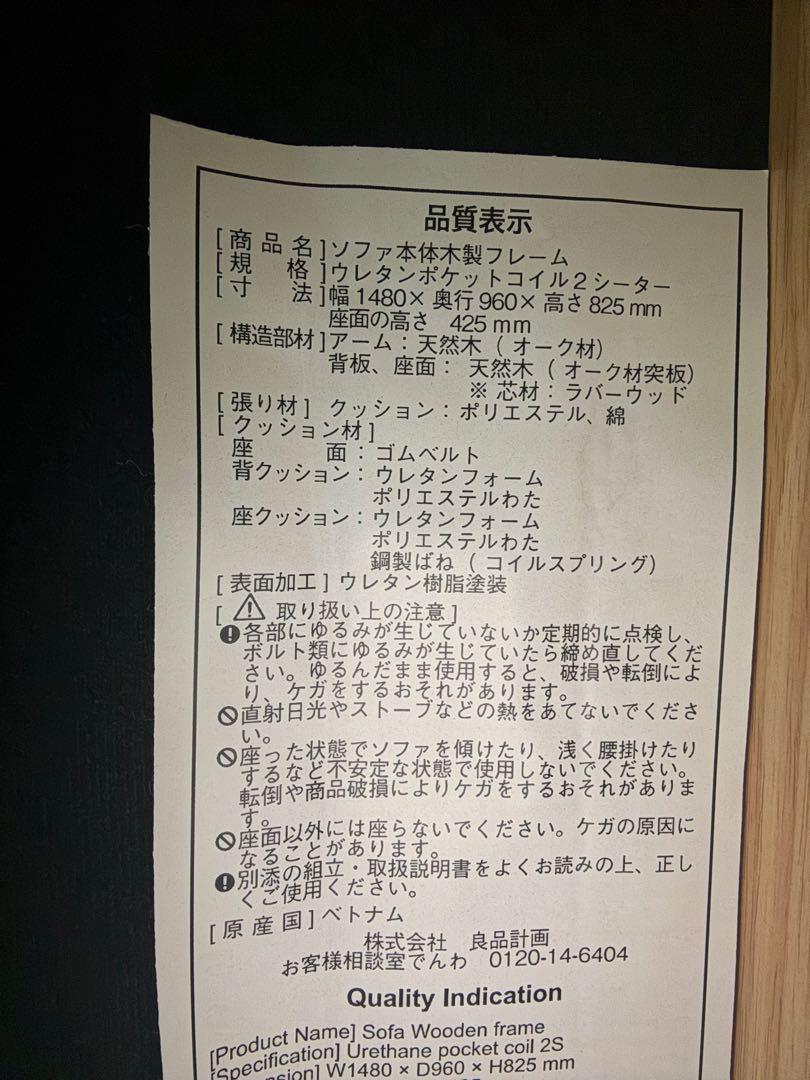 品質表示
[商品名]ソファ本体木製フレーム
[規格]ウレタンポケットコイル2シーター
[寸法]幅1480×奥行960×高さ825mm
座面の高さ 425mm
[構造部材]アーム:天然木(オーク材)
背板、座面:天然木(オーク材突板)
※芯材:ラバーウッド
[張り材] クッション:ポリエステル、綿
[クッション材]
座面:ゴムベルト
背クッション:ウレタンフォーム
ポリエステルわた
座クッション:ウレタンフォーム
ポリエステルわた
鋼製ばね(コイルスプリング)
[表面加工]ウレタン樹脂塗装
[⚠ 取り扱い上の注意]
各部にゆるみが生じていないか定期的に点検し、
ボルト類にゆるみが生じていたら締め直してくだ
さい。ゆるんだまま使用すると、破損や転倒によ
り、ケガをするおそれがあります。
直射日光やストーブなどの熱をあてないでくださ
い。
座った状態でソファを傾けたり、浅く腰掛けたり
するなど不安定な状態で使用しないでください。
転倒や商品破損によりケガをするおそれがありま
す。
座面以外には座らないでください。ケガの原因に
なることがあります。
別添の組立・取扱説明書をよくお読みの上、正し
くご使用ください。
[原産国]ベトナム
株式会社 良品計画
お客様相談室でんわ 0120-14-6404
Quality Indication
[Product Name] Sofa Wooden frame
[Specification] Urethane pocket coil 2S
W1480 × D960 × H825 mm